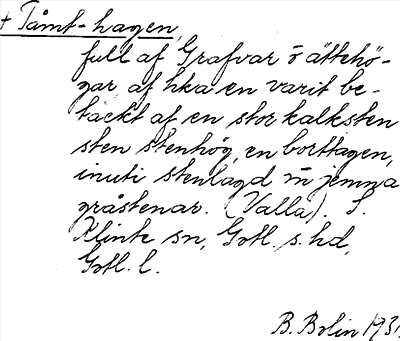 + Tåmt-hagen,
full af Grafvar o ättehö-
gar af hka en varit be-
täckt af en stor kalksten
sten stenhög, en borttagen,
inuti stenlagd m jemna
gråstenar. (Valla). S.
Klinte sn, Gotl. s. hd,
Gotl. l.
B. Bolin 1931.